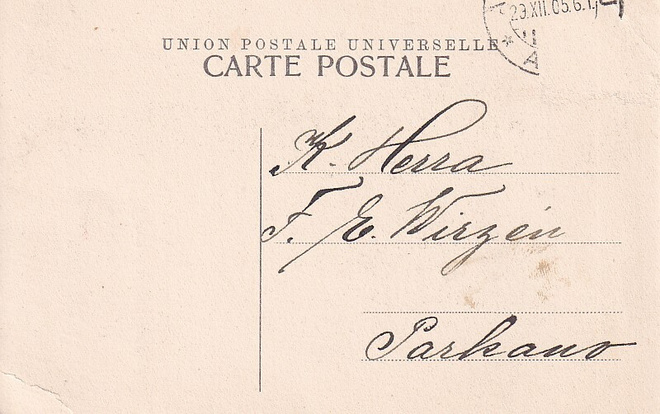 29.XII.05.6.1.
UNION POSTALE UNIVERSELLE
CARTE POSTALE
K. Herra
F. E. Wirzén
Parkano